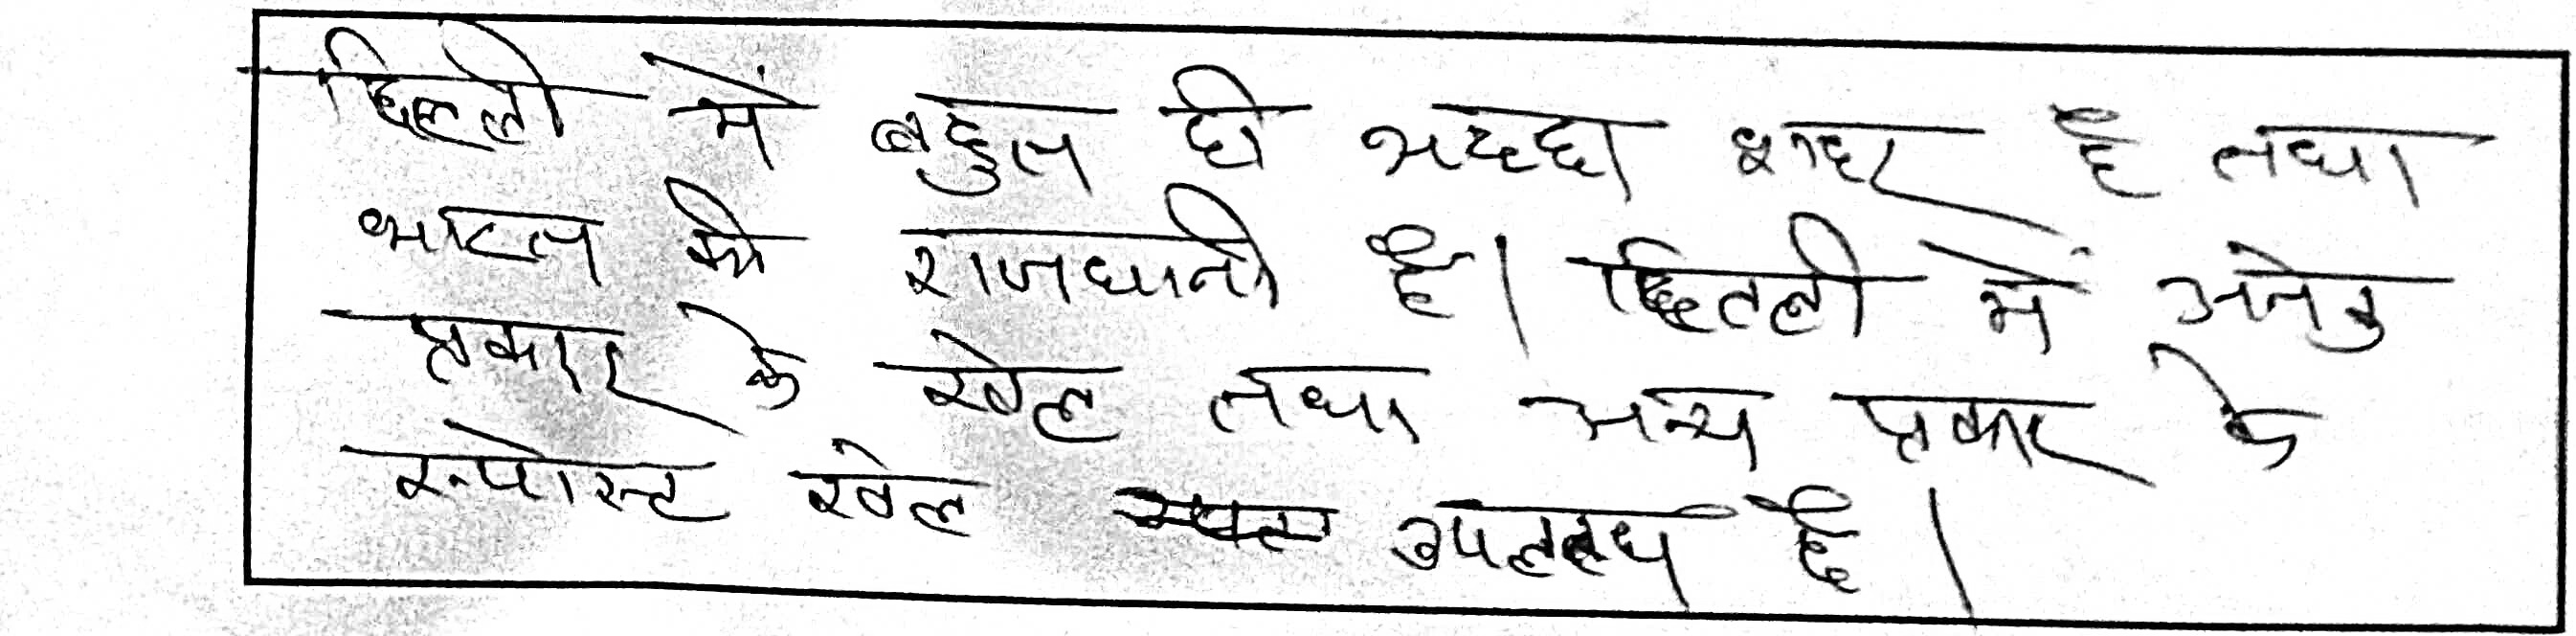 दिल्ली में बहुत ही अच्छा शहर है तथा
भारत की राजधानी है। दिल्ली में अनेक
प्रकार के खेल तथा अन्य प्रकार के
स्पोस्ट खेल उपलब्ध है।